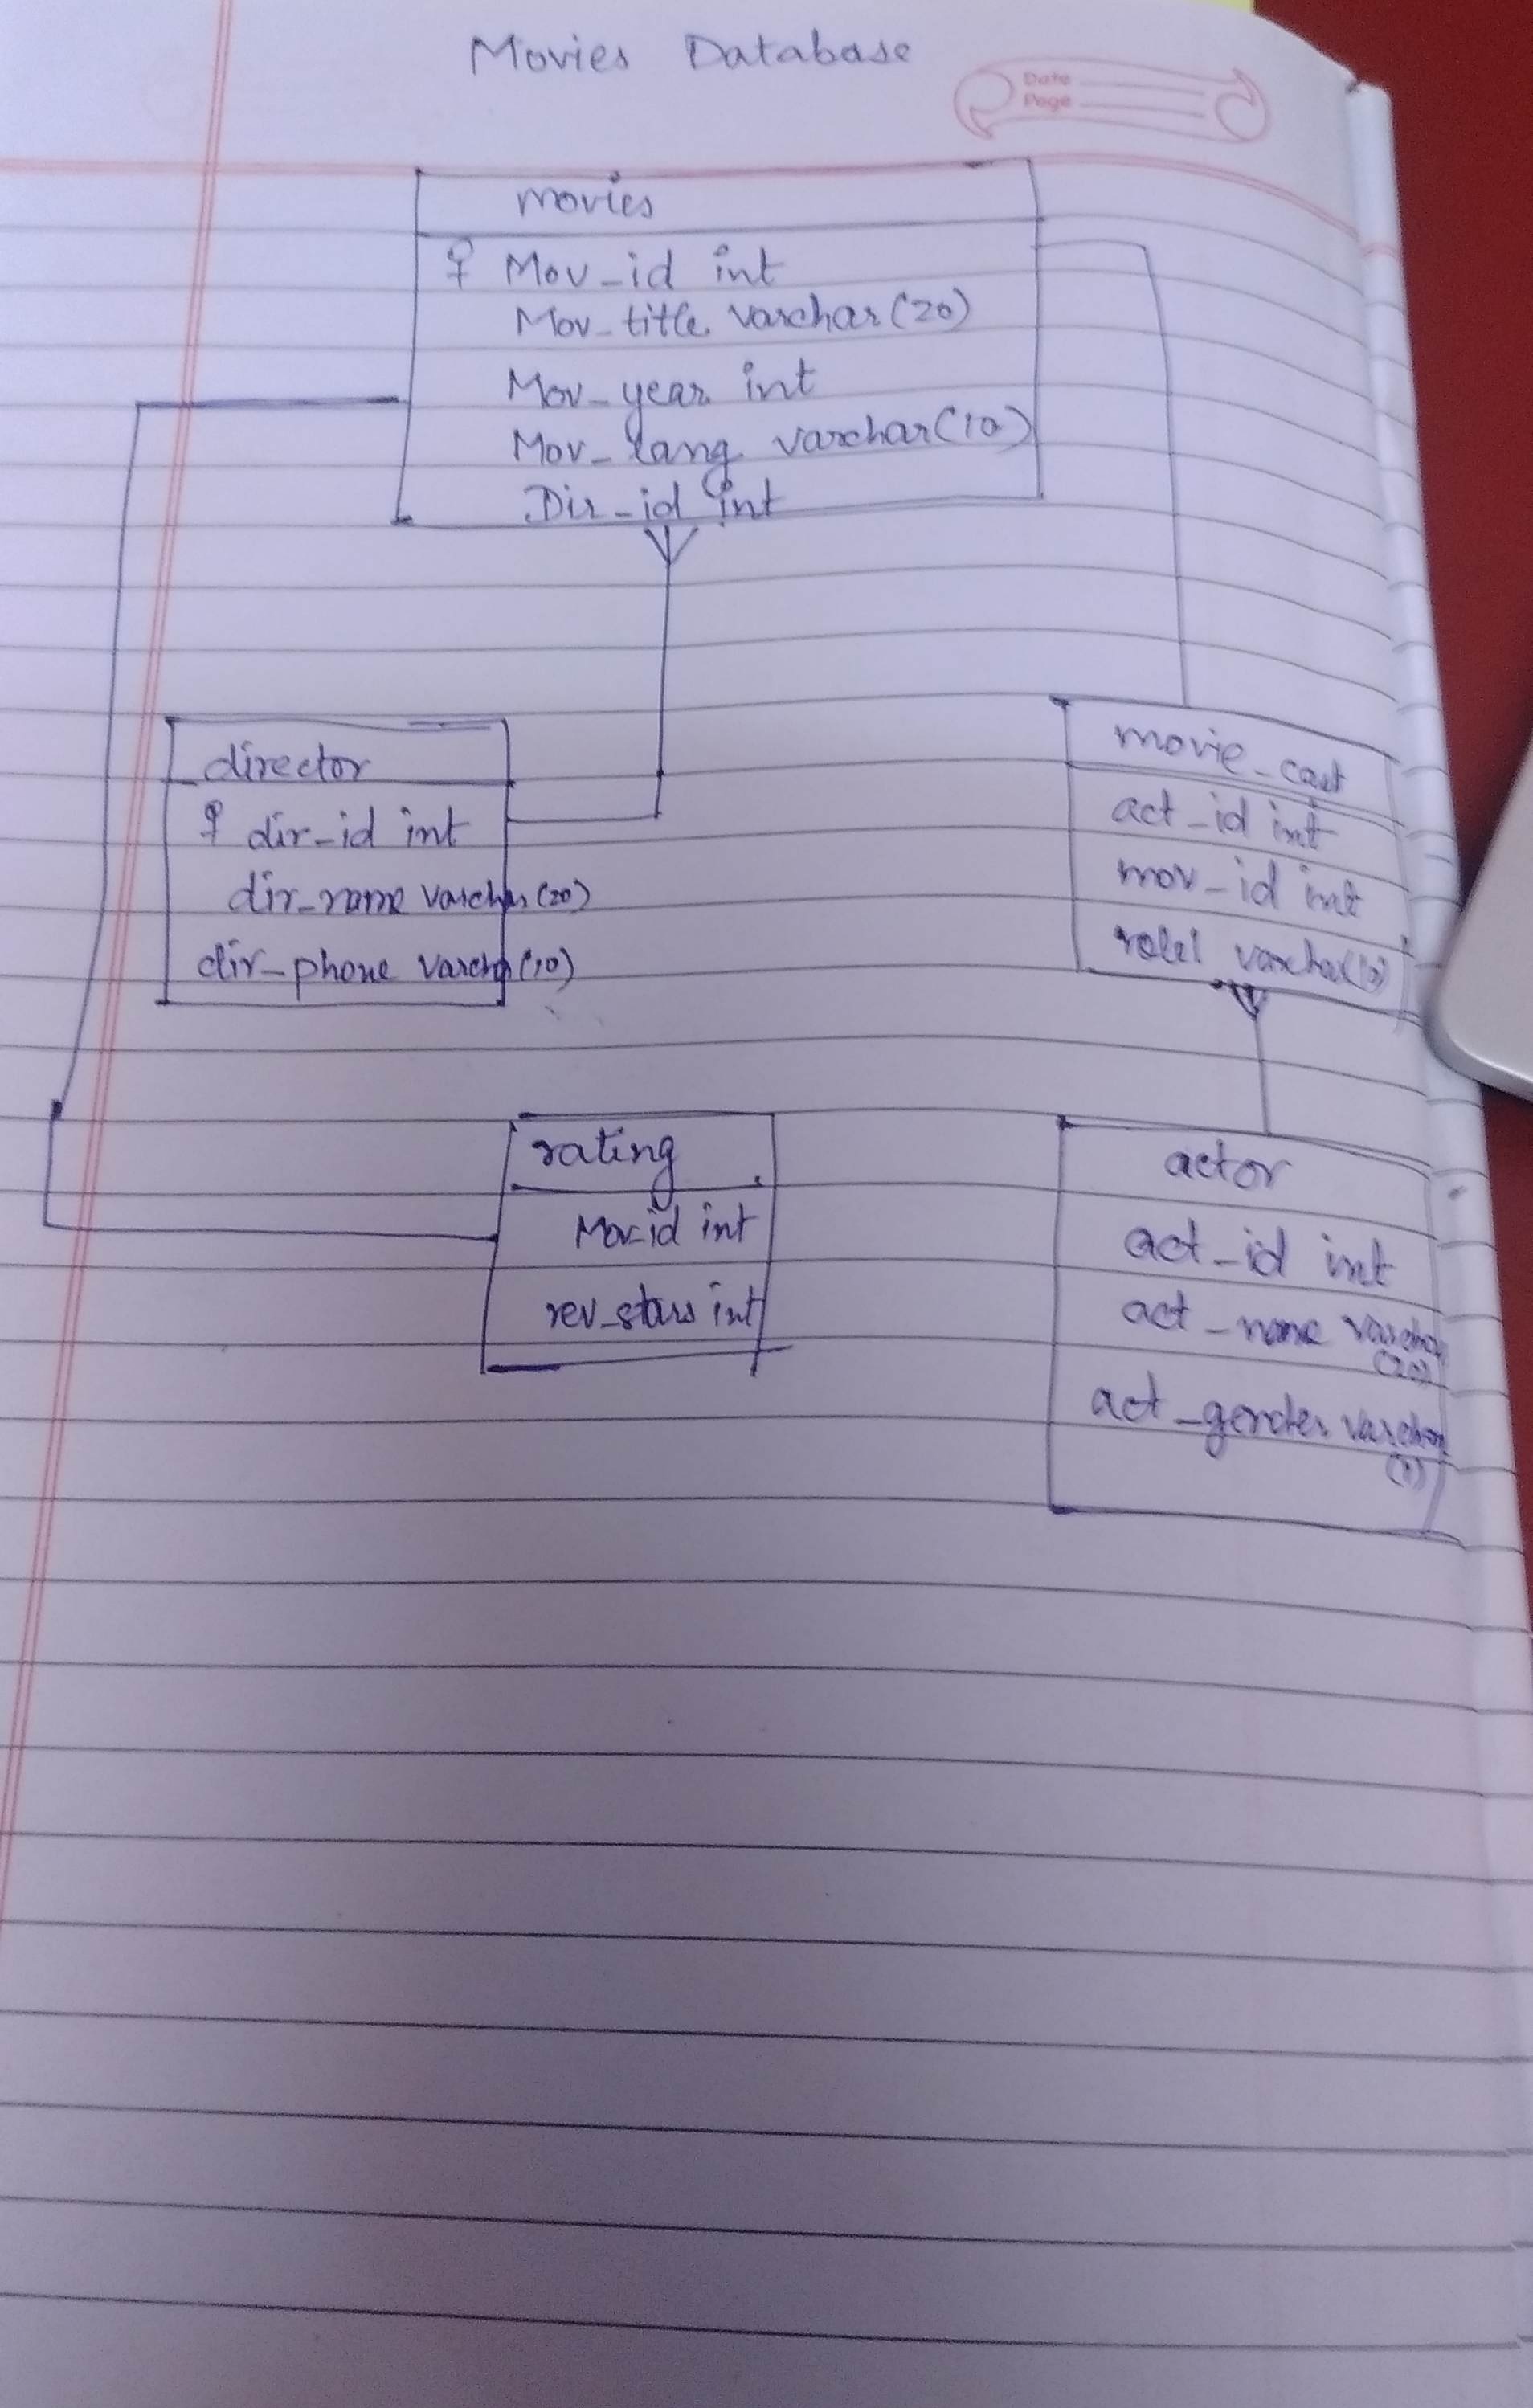 Movies Database
Date
Page
movies
Mov_id int
Mov_title varchar(20)
Mov_year int
Mov_lang varchar(10)
Dir_id int
director
dir_id int
dir_name varchar(20)
dir_phone varchar(10)
movie_cast
act_id int
mov_id int
varchar(10)
rating
Mov_id int
rev_stars int
actor
act_id int
act_name varchar
(20)
act_gender varchar